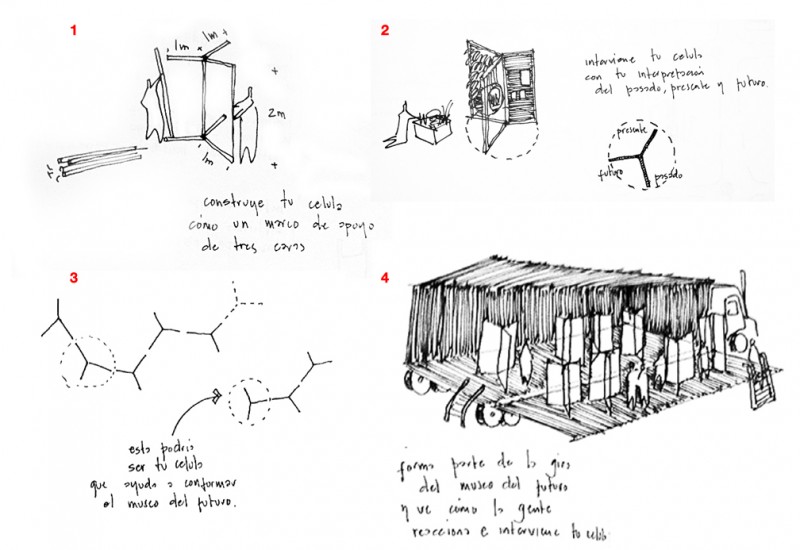 1
1m x 1m
2m
1m
construye tu celula
cómo un marco de apoyo
de tres caras
2
interviene tu celula
con tu interpretación
del pasado, presente y futuro.
presente
futuro
pasado
3
esta podría
ser tu celula
que ayuda a conformar
el museo del futuro.
4
forma parte de la gira
del museo del futuro
y ve cómo la gente
reacciona e interviene tu celula